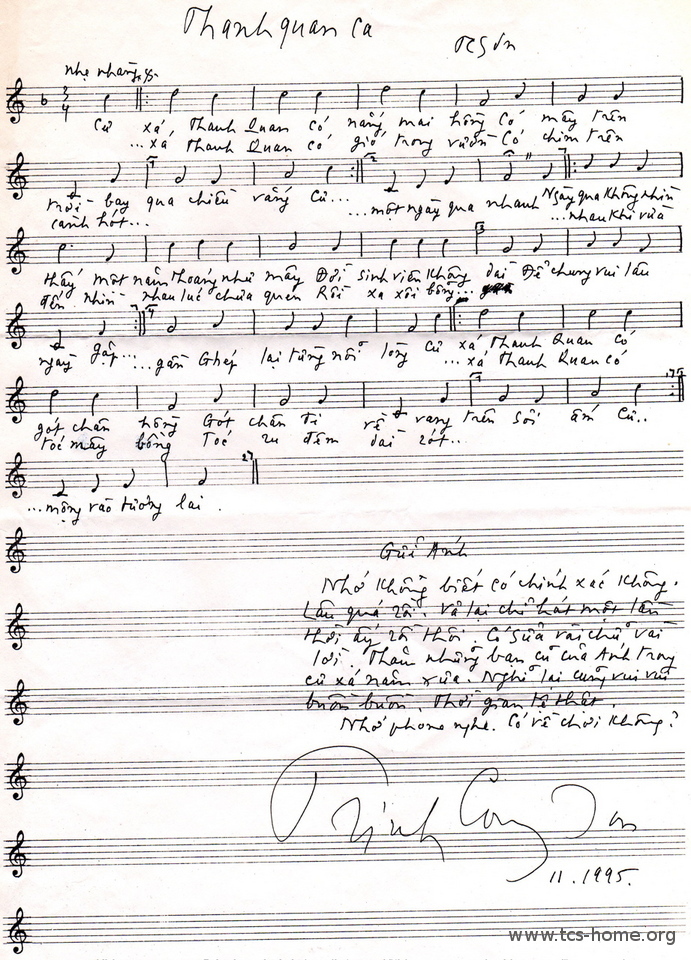 Thanh quan ca
TCSơn
nhẹ nhàng
3
4
Cư xá, Thanh Quan có nắng mai hồng Có mây trên
...xá Thanh Quan có gió trong vườn Có chim trên
trời bay qua chiều vắng Cư... ...một ngày qua nhanh Ngày qua không nhìn
cành hót... ...nhau khi vừa
thấy một năm thoáng như mây Đời sinh viên không dài Để chung vui lâu
đến nhìn nhau lúc chưa quen Rồi xa xôi bỗng...
ngày gặp... ...gần Ghép lại từng nỗi lòng Cư xá Thanh Quan có
...xá Thanh Quan có
gót chân hồng Gót chân đi về vang trên sỏi ấm Cư..
Tóc mây bồng Tóc ru đêm dài rớt...
...mộng vào tương lai.
Gửi Anh
Nhớ không biết có chính xác không.
Lâu quá rồi. Và lại chỉ hát một lần
thời ấy rồi thôi. Có sửa vài chữ vài
lời. Thăm những bạn cũ của Anh trong
cư xá năm xưa. Nghĩ lại cũng vui vui
buồn buồn. Thời gian tệ thật.
Nhớ phone nghe. Có về chơi không?
Trịnh Công Sơn
11.1995.
www.tcs-home.org